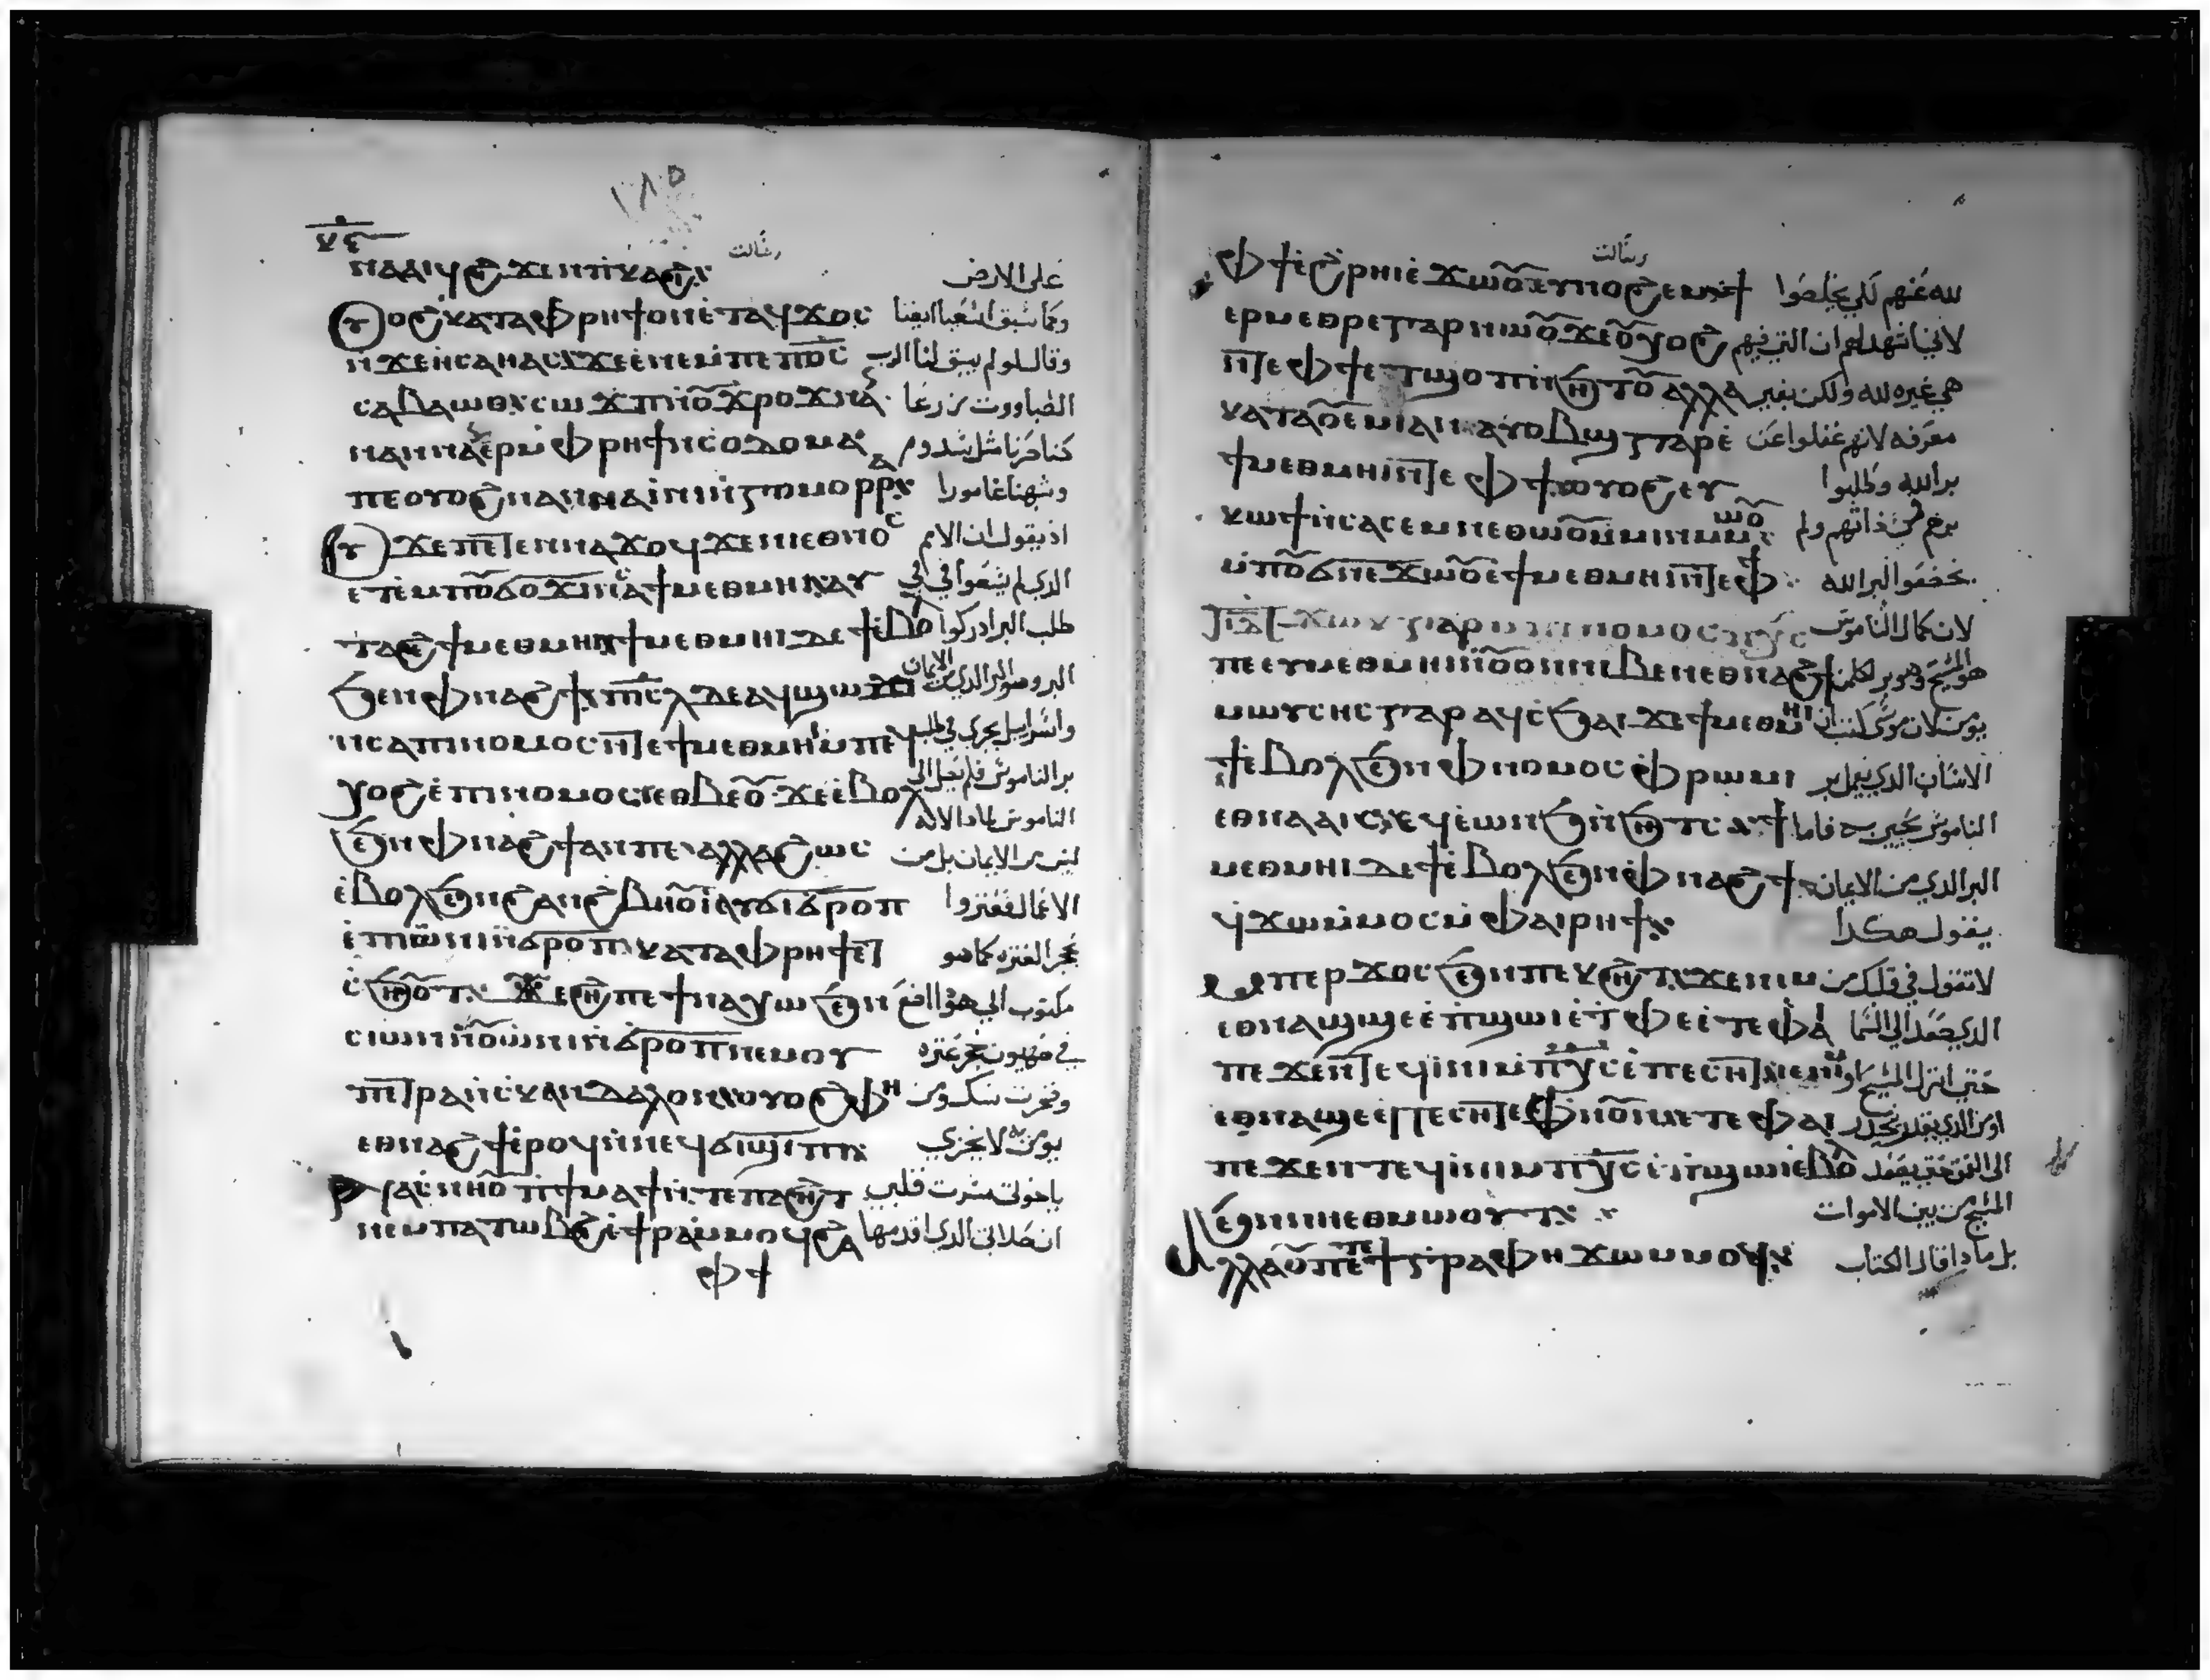 ١٨٥
رسالت
ⲛⲁⲁⲓϥ ϩⲓϫⲉⲛ ⲡⲓⲕⲁϩⲓ على الارض
ⲟⲩⲟϩ ⲕⲁⲧⲁ ⲫⲣⲏϯ ⲟⲛ ⲉⲧⲁϥϫⲟⲥ وكما سبق اشعيا ايضا
ⲛϫⲉ ⲏⲥⲁⲏⲁⲥ ϫⲉ ⲉⲛⲉⲙⲡⲉ ⲡϭⲥ وقال لو لم يبق لنا الرب
ⲥⲁⲃⲁⲱⲑ ⲥⲱϫⲡ ⲛⲟⲩϫⲣⲟϫ ⲛⲁⲛ الصباووت زرعا
ⲛⲁⲛⲛⲁⲉⲣ ⲙⲫⲣⲏϯ ⲛⲥⲟⲇⲟⲙⲁ كنا صرنا مثل سدوم
ⲡⲉ ⲟⲩⲟϩ ⲛⲁⲛⲛⲁⲓⲛⲓ ⲛⲅⲟⲙⲟⲣⲣⲁ وشبهنا غامورا
ⲟⲩ ϫⲉ ⲡⲉⲧⲉⲛⲛⲁϫⲟϥ ϫⲉ ⲛⲓⲉⲑⲛⲟⲥ اذ يقول ان الامم
ⲉⲧⲉ ⲙⲡⲟⲩϭⲟϫⲓ ⲛⲥⲁ ϯⲙⲉⲑⲙⲏⲓ ⲁⲩ الذي لم يسعوا في
ⲧⲁϩⲉ ϯⲙⲉⲑⲙⲏⲓ ϯⲙⲉⲑⲙⲏⲓ ⲇⲉ ϯⲉⲃⲟⲗ طلب البر ادركوا
ϧⲉⲛ ⲫⲛⲁϩϯ ⲡⲓⲥⲗ ⲇⲉ البر وهو البر الذي من الايمان
ⲛⲥⲁ ⲡⲓⲛⲟⲙⲟⲥ ⲛⲧⲉ ϯⲙⲉⲑⲙⲏⲓ ⲙⲡⲉϥ واسرايل يجري في طلب
ⲫⲟϩ ⲉⲡⲓⲛⲟⲙⲟⲥ ⲉⲑⲃⲉⲟⲩ ϫⲉ ⲉⲃⲟⲗ بر الناموس فلم يصل الى
الناموس لماذا لانه
ϧⲉⲛ ⲫⲛⲁϩϯ ⲁⲛ ⲡⲉ ⲁⲗⲗⲁ ϩⲱⲥ ليس من الايمان بل من
ⲉⲃⲟⲗ ϧⲉⲛ ϩⲁⲛϩⲃⲏⲟⲩⲓ ⲁⲩϭⲓϭⲣⲟⲡ الاعمال فعثروا
ⲉⲡⲓⲱⲛⲓ ⲛϭⲣⲟⲡ ⲕⲁⲧⲁ ⲫⲣⲏϯ ⲉⲧ بحجر العثره كما هو
ⲥϧⲏⲟⲩⲧ ϫⲉ ϩⲏⲡⲡⲉ ϯⲛⲁⲭⲱ ϧⲉⲛ مكتوب اني هوذا اضع
ⲥⲓⲱⲛ ⲛⲟⲩⲱⲛⲓ ⲛϭⲣⲟⲡ ⲛⲉⲙ ⲟⲩ في صهيون حجر عثره
ⲡⲉⲧⲣⲁ ⲛⲥⲕⲁⲛⲇⲁⲗⲟⲛ ⲟⲩⲟϩ ⲫⲏ وصخرت شك ومن
ⲉⲑⲛⲁϩϯ ⲉⲣⲟϥ ⲛⲛⲉϥϭⲓϣⲓⲡⲓ يومن به لا يخزي
ⲛⲁⲥⲛⲏⲟⲩ ⲡⲓϯⲙⲁϯ ⲛⲧⲉ ⲡⲁϩⲏⲧ ياخوتي مسرت قلبي
ⲛⲉⲙ ⲡⲁⲧⲱⲃϩ ⲉϯⲣⲁ ⲙⲙⲟϥ ϩⲁ ان صلاتي الذي اقدمها
ⲫϯ
رسالت
ⲫϯ ⲉϩⲣⲏⲓ ⲉϫⲱⲟⲩ ⲉⲩⲛⲟϩⲉⲙ ϯ لله عنهم لكي يخلصوا
ⲉⲣⲙⲉⲑⲣⲉ ⲅⲁⲣ ⲛⲱⲟⲩ ϫⲉ ⲟⲩⲭⲟϩ لاني اشهد لهم ان التي فيهم
ⲛⲧⲉ ⲫϯ ⲉⲧϣⲟⲡ ⲛϧⲏⲧⲟⲩ ⲁⲗⲗⲁ هي غيره لله ولكن بغير
ⲕⲁⲧⲁ ⲟⲩⲉⲙⲓ ⲁⲛ ⲁⲩⲟⲃϣ ⲅⲁⲣ ⲉ معرفه لانهم غفلوا عن
ϯⲙⲉⲑⲙⲏⲓ ⲛⲧⲉ ⲫϯ ⲟⲩⲟϩ ⲉⲩ بر الله وطلبوا
ⲕⲱϯ ⲛⲥⲁ ⲥⲉⲙⲛⲉ ⲑⲱⲟⲩ ⲙⲙⲓⲛ ⲙⲙⲱⲟⲩ ولم
ⲙⲡⲟⲩϭⲛⲉϫⲱⲟⲩ ⲉϯⲙⲉⲑⲙⲏⲓ ⲛⲧⲉ ⲫϯ يخضعوا لبر الله
ϫⲱⲕ ⲅⲁⲣ ⲙⲡⲓⲛⲟⲙⲟⲥ ⲡⲭⲥ لان كمال الناموس
ⲡⲉ ⲉⲩⲙⲉⲑⲙⲏⲓ ⲛⲟⲩⲟⲛ ⲛⲓⲃⲉⲛ ⲉⲑⲛⲁϩϯ هو المسيح وهو بر لكل من
ⲙⲱⲩⲥⲏⲥ ⲅⲁⲣ ⲁϥⲥϧⲁⲓ ϫⲉ ϯⲙⲉⲑⲙⲏⲓ يومن لان موسى كتب ان
ϯⲉⲃⲟⲗ ϧⲉⲛ ⲫⲛⲟⲙⲟⲥ ⲫⲣⲱⲙⲓ الانسان الذي يعمل بر
ⲉⲑⲛⲁⲁⲓⲥ ⲉϥⲉⲱⲛϧ ⲛϧⲏⲧⲥ ϯ الناموس يحيى به فاما
ⲙⲉⲑⲙⲏⲓ ⲇⲉ ϯⲉⲃⲟⲗ ϧⲉⲛ ⲫⲛⲁϩϯ البر الذي من الايمان
ϥϫⲱ ⲙⲙⲟⲥ ⲙⲫⲁⲓⲣⲏϯ يقول هكذا
ⲙⲡⲉⲣϫⲟⲥ ϧⲉⲛ ⲡⲉⲕϩⲏⲧ ϫⲉ ⲛⲓⲙ لا تقول في قلبك من
ⲉⲑⲛⲁϣϣⲉ ⲉⲡϣⲱⲓ ⲉⲧⲫⲉ ⲉⲧⲉ ⲫⲁⲓ الذي صعد الى السما
ⲡⲉ ϫⲉ ⲛⲧⲉϥⲓⲛⲓ ⲙⲡⲭⲥ ⲉⲡⲉⲥⲏⲧ ⲓⲉ ⲛⲓⲙ حتى انزل المسيح او
ⲉⲑⲛⲁϣⲉ ⲉⲡⲉⲥⲏⲧ ⲉⲫⲛⲟⲩⲛ ⲉⲧⲉ ⲫⲁⲓ او من الذي يقدر ينحدر
ⲡⲉ ϫⲉ ⲛⲧⲉϥⲓⲛⲓ ⲙⲡⲭⲥ ⲉⲡϣⲱⲓ ⲉⲃⲟⲗ حتى يصعد
ϧⲉⲛ ⲛⲏ ⲉⲑⲙⲱⲟⲩⲧ المسيح من بين الاموات
ⲁⲗⲗⲁ ⲟⲩ ⲡⲉⲧⲉ ϯⲅⲣⲁⲫⲏ ϫⲱ ⲙⲙⲟϥ بل ماذا قال الكتاب